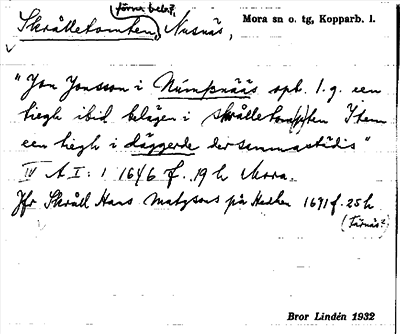 förnr beb?,
Skrålletomten, Nusnäs,
Mora sn o. tg, Kopparb. l.
"Jon Jonsson i Núnþnääs opb. l. g. een
tiegh ibid. belägen i skrålletom(p)ten Item
een tiegh i däggerde dersammastädis"
IV A I: 1 1646 f. 19 h Mora.
Jfr Skråll Hans Matzsons på Heden 1691 f. 25 h
(Färnäs?)
Bror Lindén 1932